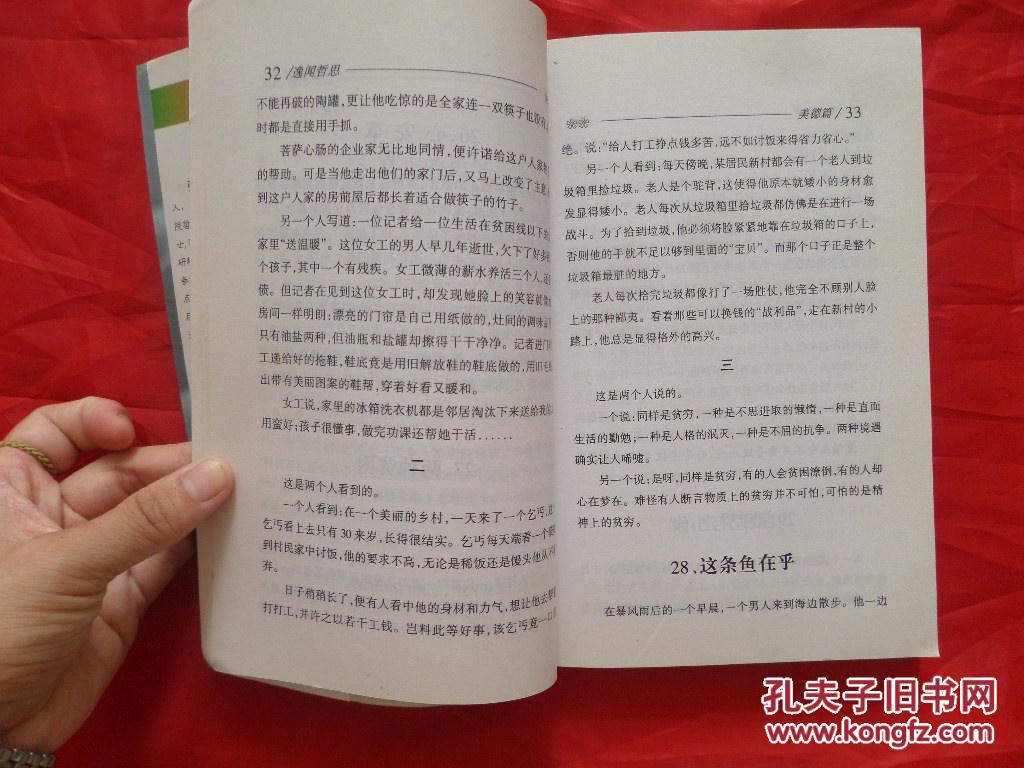 32/逸闻哲思
不能再破的陶罐,更让他吃惊的是全家连一双筷子也没有
时都是直接用手抓。
菩萨心肠的企业家无比地同情,便许诺给这户人家
的帮助。可是当他走出他们的家门后,又马上改变了主意
到这户人家的房前屋后都长着适合做筷子的竹子。
另一个人写道:一位记者给一位生活在贫困线以下
家里“送温暖”。这位女工的男人早几年逝世,欠下了好多
个孩子,其中一个有残疾。女工微薄的薪水养活三个人,还
债。但记者在见到这位女工时,却发现她脸上的笑容就像
房间一样明朗:漂亮的门帘是自己用纸做的,灶间的调味品
只有油盐两种,但油瓶和盐罐却擦得干干净净。记者进门
工递给好的拖鞋,鞋底竟是用旧解放鞋的鞋底做的,用旧毛
出带有美丽图案的鞋帮,穿着好看又暖和。
女工说,家里的冰箱洗衣机都是邻居淘汰下来送给我
用蛮好;孩子很懂事,做完功课还帮她干活......
二
这是两个人看到的。
一个人看到:在一个美丽的乡村,一天来了一个乞丐,
乞丐看上去只有30来岁,长得很结实。乞丐每天端着一个
到村民家中讨饭,他的要求不高,无论是稀饭还是馒头他从不
弃。
日子稍稍长了,便有人看中他的身材和力气,想让他去
打打工,并许之以若干工钱。岂料此等好事,该乞丐竟一口
美德篇/33
绝。说:“给人打工挣点钱多苦,远不如讨饭来得省力省心。”
另一个人看到:每天傍晚,某居民新村都会有一个老人到垃
圾箱里捡垃圾。老人是个驼背,这使得他原本就矮小的身材愈
发显得矮小。老人每次从垃圾箱里拾垃圾都仿佛是在进行一场
战斗。为了给到垃圾,他必须将脸紧紧地靠在垃圾箱的口子上,
否则他的手就不足以够到里面的“宝贝”。而那个口子正是整个
垃圾箱最脏的地方。
老人每次拾完垃圾都像打了一场胜仗,他完全不顾别人脸
上的那种鄙夷。看着那些可以换钱的“战利品”,走在新村的小
路上,他总是显得格外的高兴。
三
这是两个人说的。
一个说:同样是贫穷,一种是不思进取的懒惰,一种是直面
生活的勤勉;一种是人格的泯灭,一种是不屈的抗争。两种境遇
确实让人唏嘘。
另一个说:是呀,同样是贫穷,有的人会贫困潦倒,有的人却
心在梦在。难怪有人断言物质上的贫穷并不可怕,可怕的是精
神上的贫穷。
28、这条鱼在乎
在暴风雨后的一个早晨,一个男人来到海边散步。他一边
孔夫子旧书网
www.kongfz.com